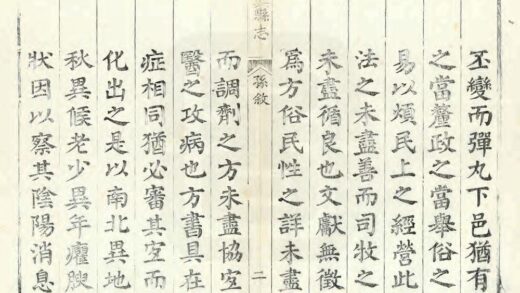 丕變而彈丸下邑猶有
之當釐政之當舉俗之
易以煩民上之經營此
法之未盡善而司牧之
未盡循良也文獻無徵
爲方俗民性之詳未盡
縣志
孫敘
二
而調劑之方未盡協宜
醫之攻病也方書具在
症相同猶必審其宜而
化出之是以南北異地
秋異候老少異年癯腴
狀因以察其陰陽消息